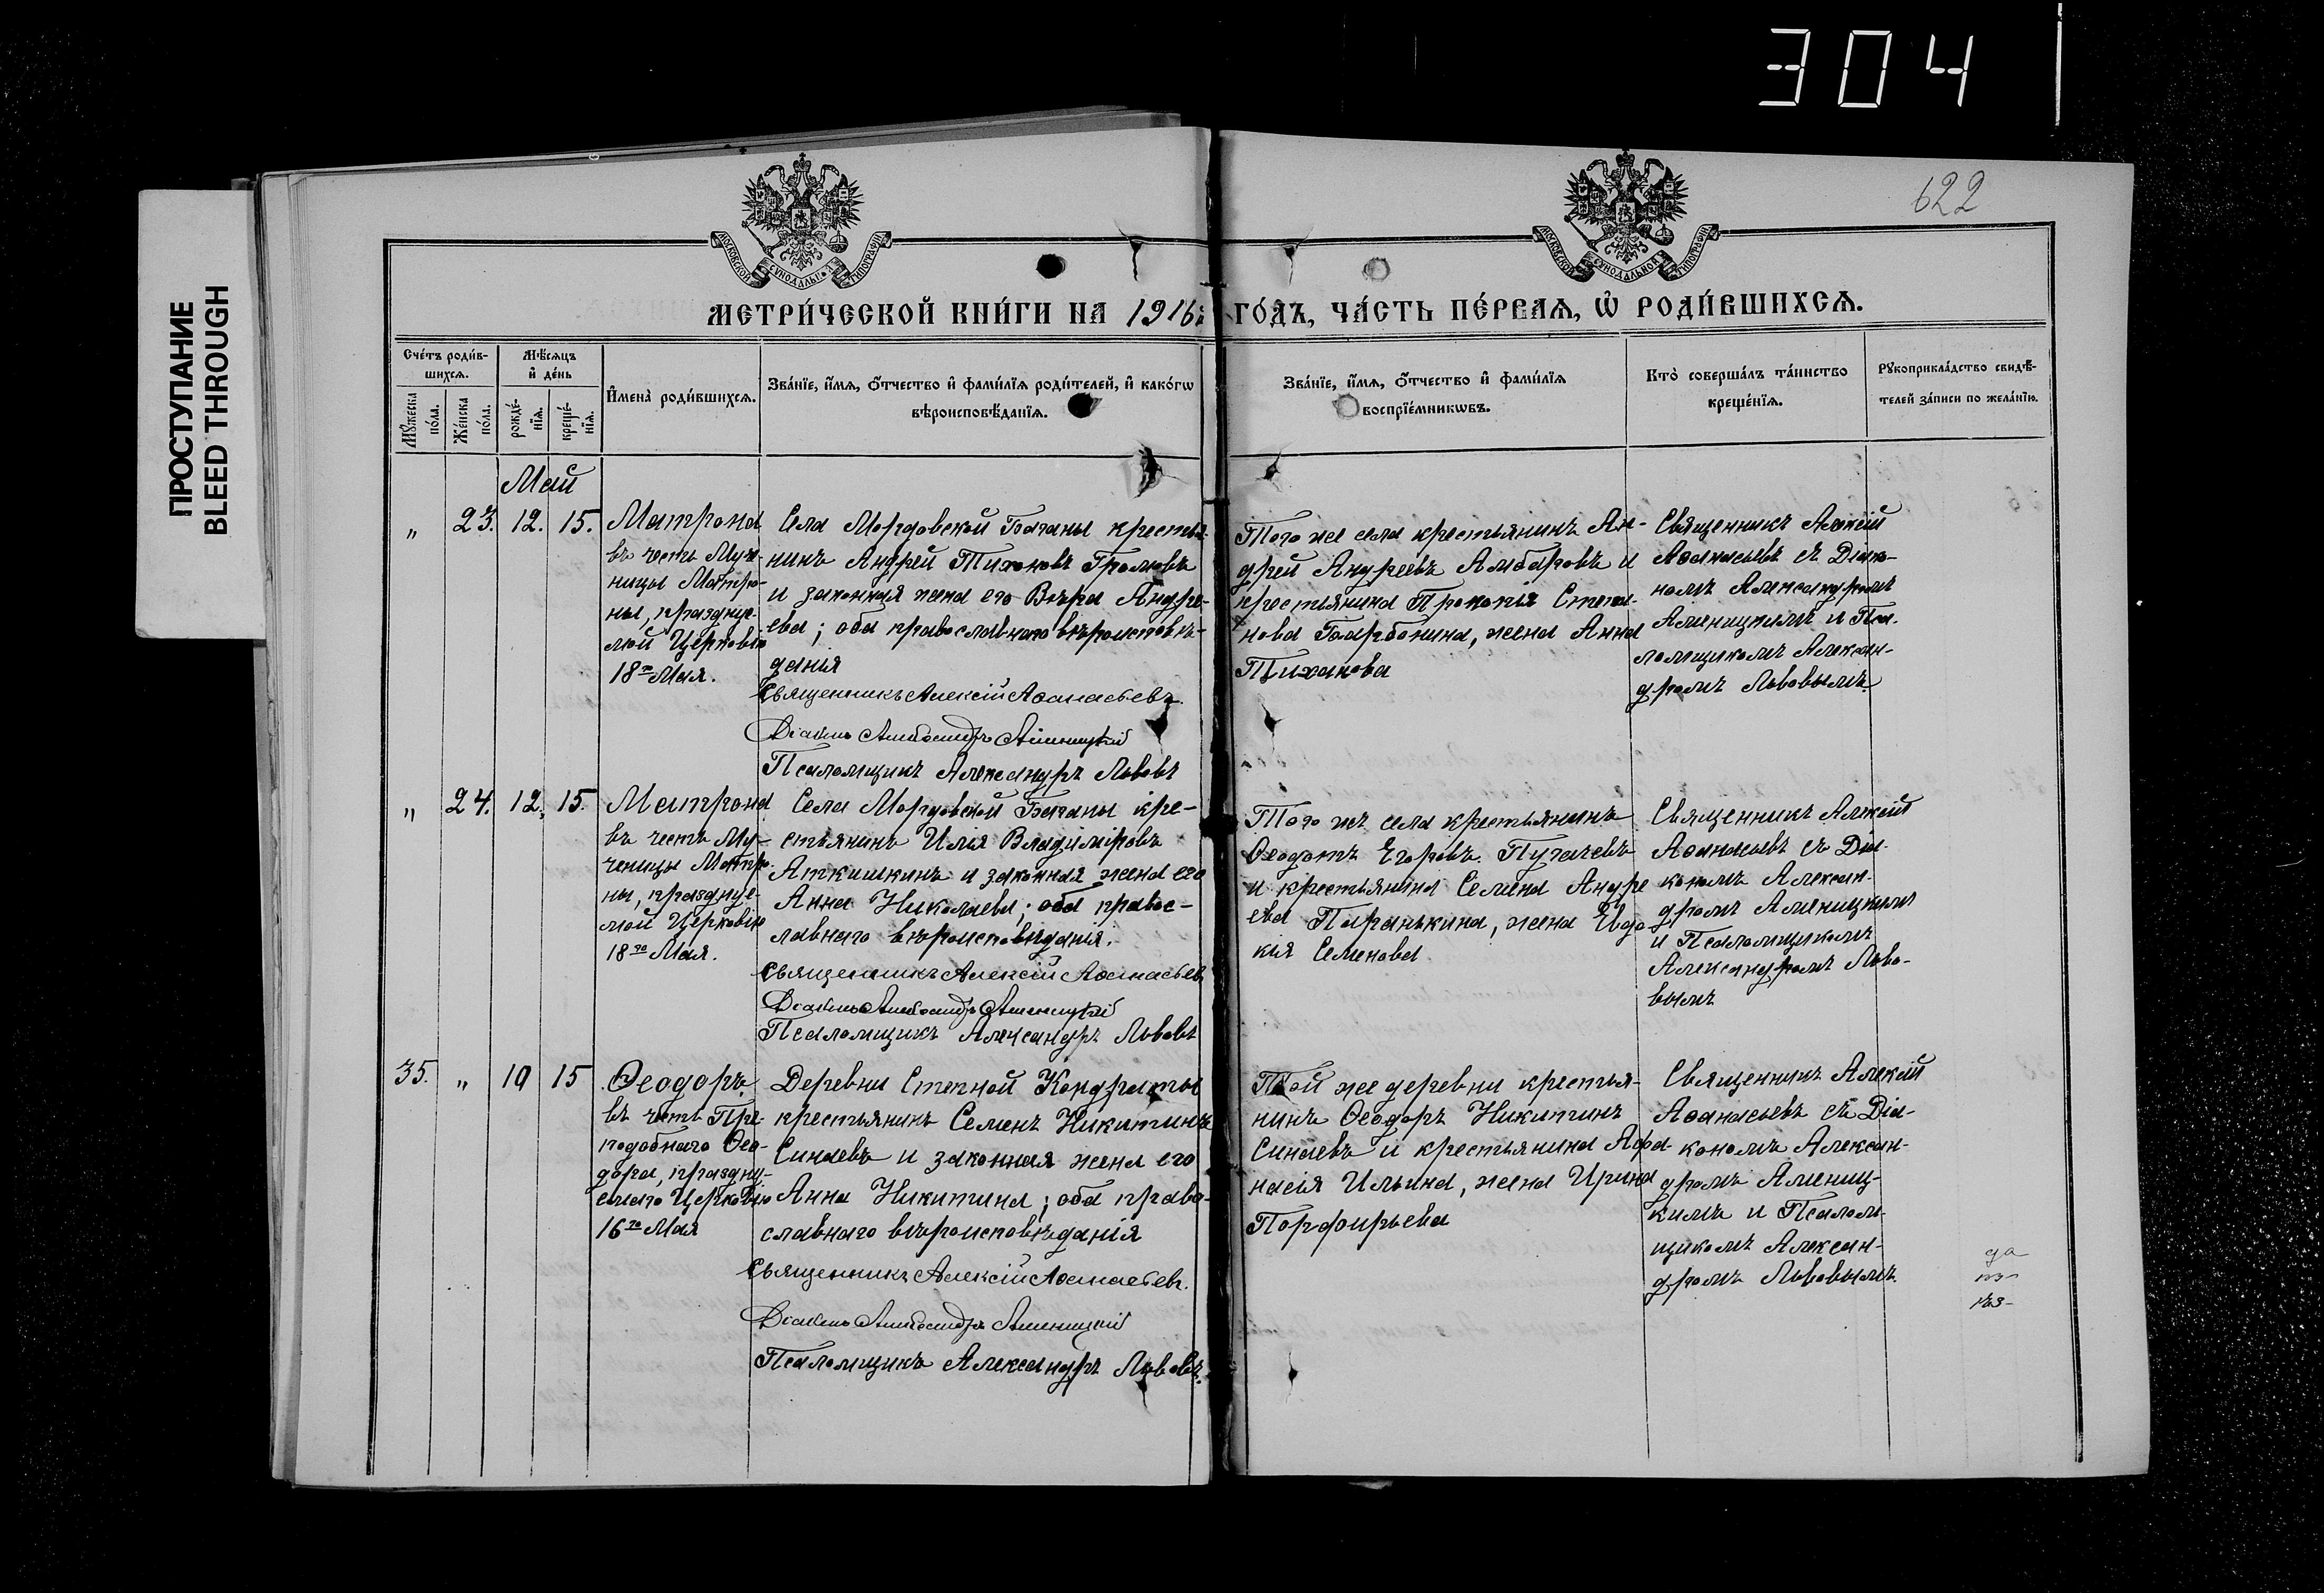 304
ПРОСТУПАНИЕ
BLEED THROUGH
622
МОСКОВСКОЙ СѴНОДАЛЬНОЙ ТИПОГРАФІИ
МОСКОВСКОЙ СѴНОДАЛЬНОЙ ТИПОГРАФІИ
МЕТРИ́ЧЕСКОЙ КНИ́ГИ НА 1916й ГО́ДЪ, ЧА́СТЬ ПЕ́РВАЯ, Ѡ РОДИ́ВШИХСЯ.
Сче́тъ роди́в-
шихся.
Мꙋжеска
по́ла.
Же́нска
по́ла.
Мѣ́сяцъ
и҆ де́нь
рожде́-
нїя.
креще́-
нїя.
И҆мена̀ роди́вшихся.
Зва́нїе, и҆́мя, ѻ҆́тчество и҆ фами́лїя роди́телей, и҆ како́гѡ
вѣроисповѣ́данїя.
Зва́нїе, и҆́мя, ѻ҆́тчество и҆ фами́лїя
воспрїе́мникѡвъ.
Кто̀ соверша́лъ та́инство
креще́нїя.
Рꙋкоприкла́дство свидѣ́-
телей за́писи по жела́нїю.
Май
„ 23. 12. 15.
Матрона
въ честь Муче-
ницы Матро-
ны, празднуе-
мой Церковію
18го Мая.
Села Мордовской Баганы крестья-
нинъ Андрей Тихоновъ Громовъ
и законная жена его Вѣра Андре-
ева; оба православнаго вѣроисповѣ-
данія
Священникъ Алексій Аѳанасьевъ.
Діаконъ Александръ Аменицкій
Псаломщикъ Александръ Львовъ
Того же села крестьянинъ Ан-
дрей Андреевъ Амбаровъ и
крестьянина Прокопія Степа-
нова жена Анна
Тиханова
Священникъ Алексій
Аѳанасьевъ съ Діако-
номъ Александромъ
Аменицкимъ и Пса-
ломщикомъ Алексан-
дромъ Львовымъ
„ 24. 12. 15.
Матрона
въ честь Му-
ченицы Матро-
ны, празднуе-
мой Церковію
18го Мая.
Села Мордовской Баганы кре-
стьянинъ Илія Владиміровъ
Аткишкинъ и законная жена его
Анна Николаева; оба правос-
лавнаго вѣроисповѣданія.
Священникъ Алексій Аѳанасьевъ
Діаконъ Александръ Аменицкій
Псаломщикъ Александръ Львовъ
Того же села крестьянинъ
Ѳеодотъ Егоровъ Пугачевъ
и крестьянина Семена Андре
ева Паранькина, жена Евдо
кія Семенова
Священникъ Алексій
Аѳанасьевъ съ Діа-
кономъ Алексан-
дромъ Аменицкимъ
и Псаломщикомъ
Александромъ Льво-
вымъ
35. „ 10 15
Ѳеодоръ
въ честь Пре-
подобнаго Ѳео-
дора, праздну-
емаго Церковію
16го Мая
Деревни Степной Кондраты
крестьянинъ Семенъ Никитинъ
Синаевъ и законная жена его
Анна Никитина; оба право-
славнаго вѣроисповѣданія
Священникъ Алексій Аѳанасьевъ.
Діаконъ Александръ Аменицкій
Псаломщикъ Александръ Львовъ.
Той же деревни крестья-
нинъ Ѳеодоръ Никитинъ
Синаевъ и крестьянина Аѳа-
насія Ильина, жена Ирина
Порфирьева
Священникъ Алексій
Аѳанасьевъ съ Діа-
кономъ Алексан-
дромъ Амениц-
кимъ и Псалом-
щикомъ Алексан-
дромъ Львовымъ